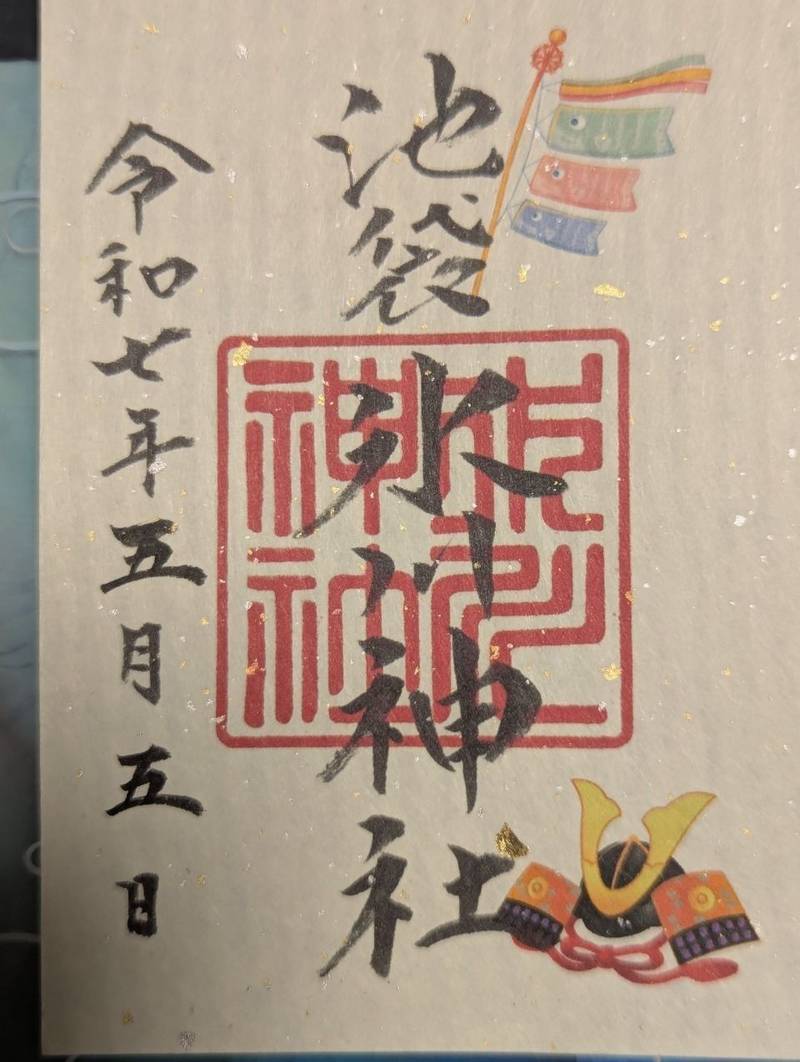 池袋氷川神社
氷川神社
令和七年五月五日